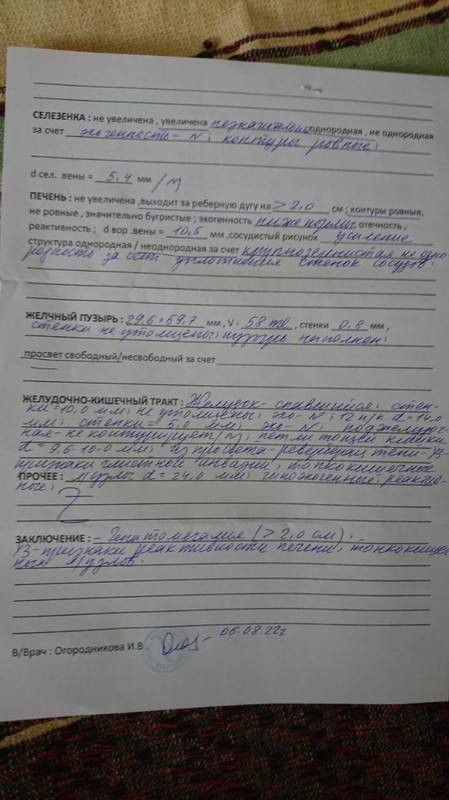 СЕЛЕЗЕНКА : не увеличена , увеличена незначительно, однородная , не однородная
за счет эхогенность - N; контуры ровные;
d сел. вены = 5,4 мм /N
ПЕЧЕНЬ : не увеличена ,выходит за реберную дугу на > 2.0 см ; контуры ровные,
не ровные , значительно бугристые ; эхогенность ниже нормы отечность ,
реактивность ; d вор .вены = 10,5 мм ,сосудистый рисунок усиление
структура однородная / неоднородная за счет крупнозернистая не одно-
родность за счет уплотнения стенок сосудов.
ЖЕЛЧНЫЙ ПУЗЫРЬ : 29.6 × 59.7 мм , V - 58 ml , стенки 0.8 мм ,
стенки не утолщены; пузырь наполнен;
просвет свободный/несвободный за счет —
ЖЕЛУДОЧНО-КИШЕЧНЫЙ ТРАКТ : Желудок - спавшийся; стен-
ки = 10,0 мм; не утолщены; эхо - N; 12 п/к d = 14,0
мм; стенки = 5,0 мм; эхо - N; поджелудоч-
ная - не контурирует /N; петли тощей кишки
d = 9,6-10.0 мм; из просвета - реверберац. тени - УЗ-
признаки глистной инвазии; тонкокишечные
ПРОЧЕЕ : л/узлы d = 24,0 мм; гипоэхогенные; реактив-
ные;
ЗАКЛЮЧЕНИЕ : - Гепатомегалия (> 2,0 см); -
УЗ-признаки реактивности печени, тонкокишеч
ных л/узлов.
В/Врач : Огородникова И.В 06.08.22г